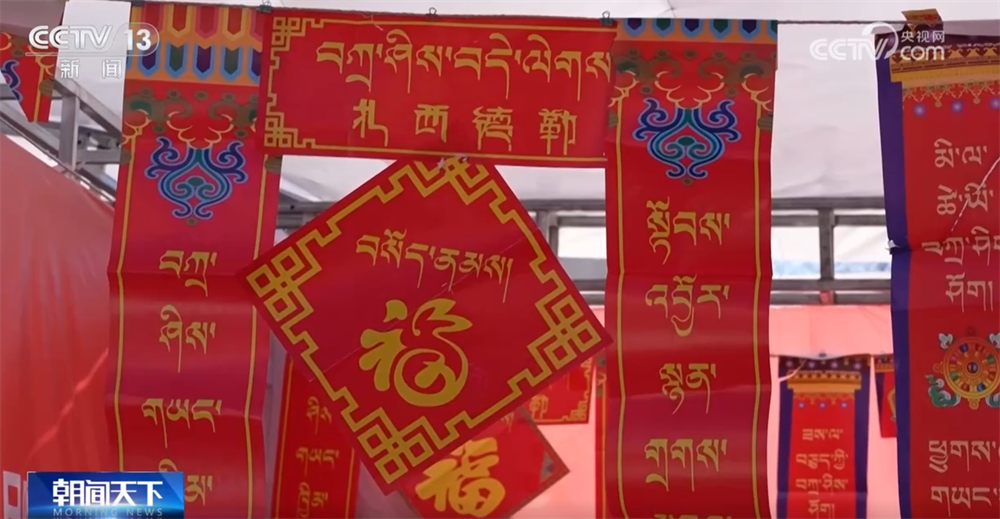 CCTV 13
新闻
CCTV 央视网
com
བཀྲ་ཤིས་བདེ་ལེགས
扎西德勒
བསོད་ནམས།
福
བཀྲ་
ཤིས་
གཡང་
སྟོབས་
འབྱོར་
སྙན་
གྲགས་
མི་ལ་
ཚེ་ཡི་
བཀྲ་ཤིས་
ཤོག།
ཕྱུགས་ལ་
གཡང་
གཡང་
福
朝闻天下
MORNING NEWS